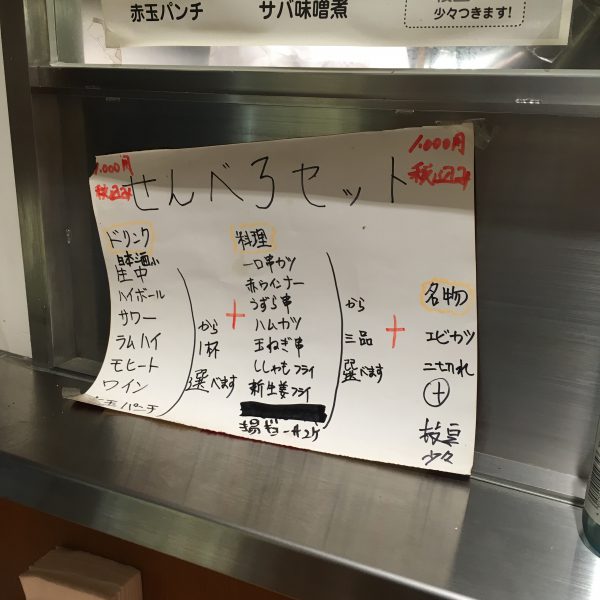 赤玉パンチ
サバ味噌煮
少々つきます!
1.000円
税込み
せんべろセット
1.000円
税込み
ドリンク
日本酒小
生中
ハイボール
サワー
ラムハイ
モヒート
ワイン
赤玉パンチ
から
1杯
選べます
+
料理
一口串カツ
赤ウインナー
うずら串
ハムカツ
玉ねぎ串
ししゃもフライ
新生姜フライ
から
三品
選べます
+
名物
エビカツ
二切れ
+
枝豆
少々